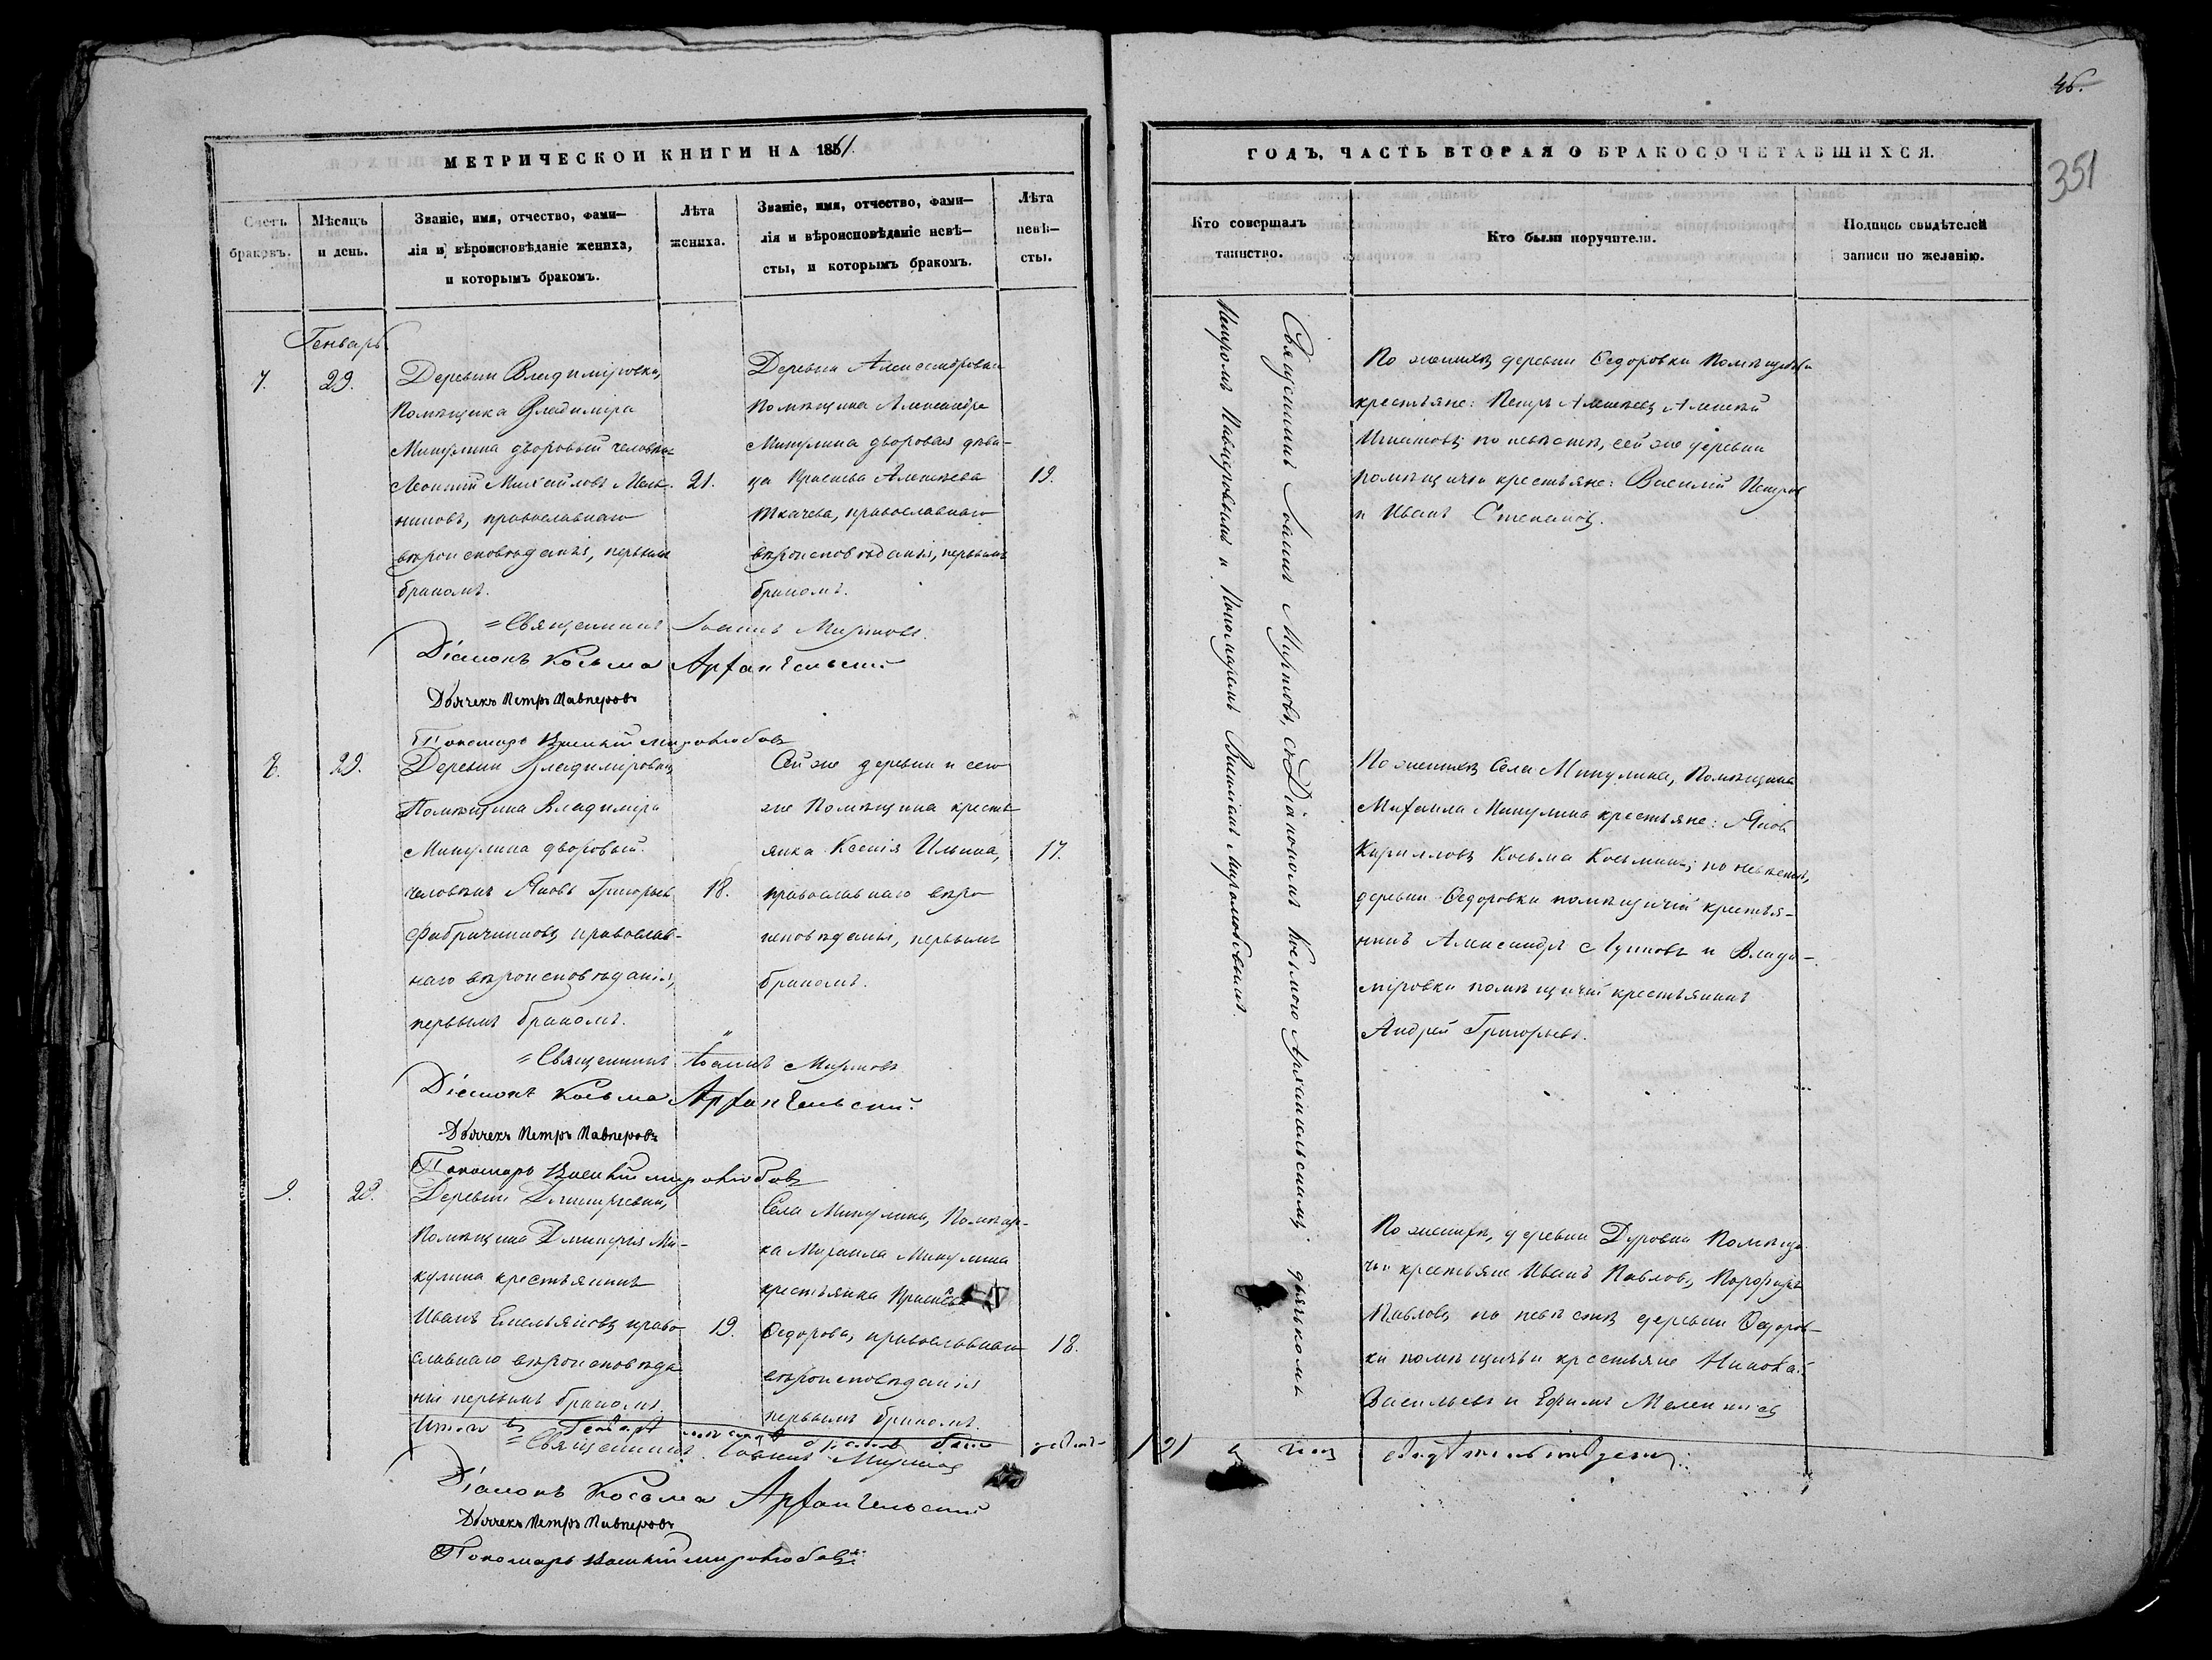 МЕТРИЧЕСКОЙ КНИГИ НА 1861
Счетъ
браковъ.
Мѣсяцъ
и день.
Званіе, имя, отчество, фами–
лія и вѣроисповѣданіе жениха,
и которымъ бракомъ.
Лѣта
жениха.
Званіе, имя, отчество, фами–
лія и вѣроисповѣданіе невѣ–
сты, и которымъ бракомъ.
Лѣта
невѣ–
сты.
Генварь.
7.
29.
Деревни Владиміровки,
Помѣщика Владиміра
Микулина дворовый человѣкъ
Леонтій Михайловъ
православнаго
вѣроисповѣданія, первымъ
бракомъ.
21.
Деревни Александровки
Помѣщика Александра
Микулина дворовая дѣви–
ца Алексѣева
Ткачева, православнаго
вѣроисповѣданія, первымъ
бракомъ.
19.
Священникъ Іоаннъ Миртовъ.
Діаконъ Косьма Архангельскій
Дьячекъ Петръ Павперовъ
Пономарь Василій Миролюбовъ
8.
29.
Деревни Владиміровки
Помѣщика Владиміра
Микулина дворовый
человѣкъ Яковъ Григорьевъ
Фабричниковъ православ–
наго вѣроисповѣданія,
первымъ бракомъ.
18.
Сей же деревни и сего
же Помѣщика крестъ
янка Ксенія Ильина,
православнаго вѣро
исповѣданія, первымъ
бракомъ.
17.
Священникъ Іоаннъ Миртовъ
Діаконъ Косьма Архангельскій.
Дьячекъ Петръ Павперовъ
Пономарь Василій Миролюбовъ
9.
29.
Деревни Дмитріевки,
Помѣщика Дмитрія Ми–
кулина крестьянинъ
Иванъ Емельяновъ право
славнаго вѣроисповѣда
нія первымъ бракомъ.
19.
Села Микулина, Помѣщи–
ка Михаила Микулина
крестьянка
Ѳедорова, православнаго
вѣроисповѣданія
первымъ бракомъ.
18.
Итого въ Генварѣ
Священникъ Іоаннъ Миртовъ
Діаконъ Косьма Архангельскій
Дьячекъ Петръ Павперовъ
Пономарь Василій Миролюбовъ
351
ГОДЪ, ЧАСТЬ ВТОРАЯ О БРАКОСОЧЕТАВШИХСЯ.
Кто совершалъ
таинство.
Кто были поручители.
Подпись свидѣтелей
записи по желанію.
Священникъ Іоаннъ Миртовъ, съ Діакономъ Косьмою Архангельскимъ, дьячкомъ
Петромъ Павперовымъ и Пономаремъ Василіемъ Миролюбовымъ.
По женихѣ деревни Ѳедоровки Помѣщичьи
крестьяне: Петръ Алексѣевъ Алексѣй
Игнатовъ; по невѣстѣ, сей же деревни
помѣщичьи крестьяне: Василій Петровъ
и Иванъ Степановъ.
По женихѣ Села Микулина, Помѣщика
Михаила Микулина крестьяне: Яковъ
Кирилловъ Косьма Косьминъ; по невѣстѣ,
деревни Ѳедоровки помѣщичій крестья–
нинъ Александръ Лукинъ и Влади–
міровки помѣщичій крестьянинъ
Андрей Григорьевъ.
По женихѣ, деревни Дуровки Помѣщи
чьи крестьяне Иванъ Павловъ, Порфирій
Павловъ, по невѣстѣ деревни Ѳедоров–
ки помѣщичьи крестьяне Николай
Васильевъ и Ефимъ